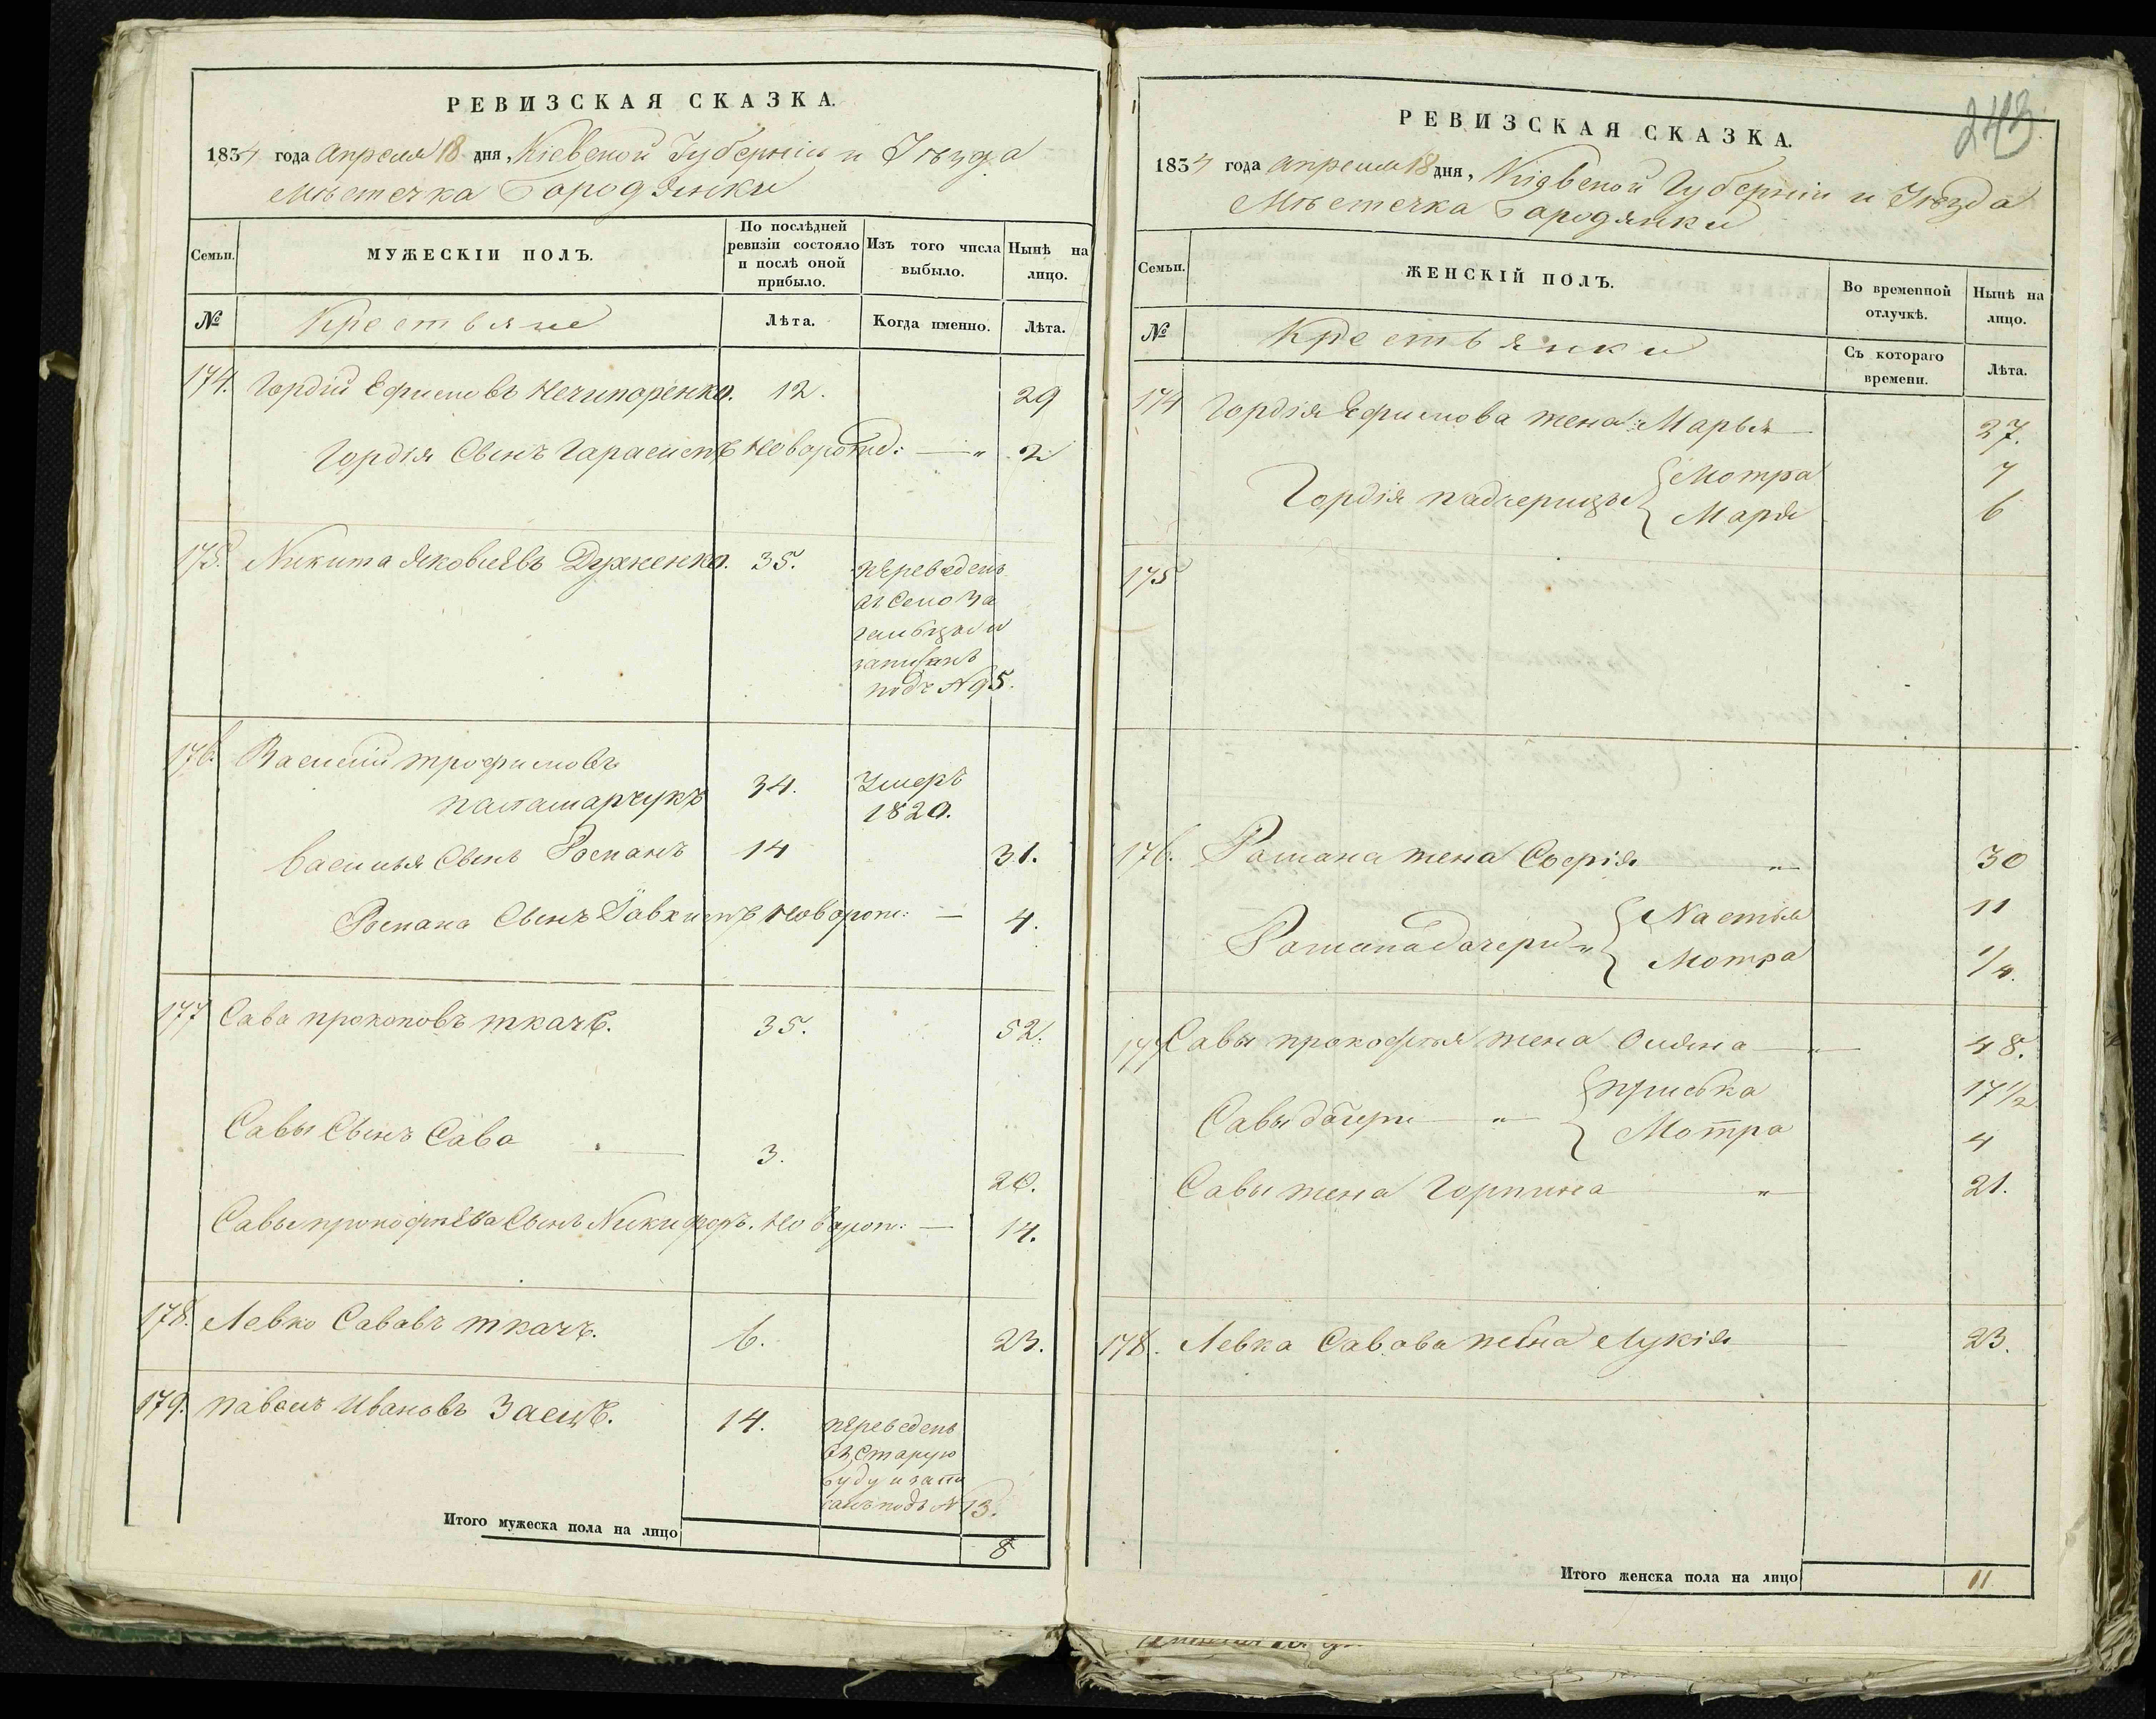 РЕВИЗСКАЯ СКАЗКА.
1834 года апреля 18 дня, Кіевской Губерніи и Уезда
Мѣстечка Бородянки
Семьи.
МУЖЕСКІЙ ПОЛЪ.
По послѣдней ревизіи состояло и послѣ оной прибыло.
Изъ того числа выбыло.
Нынѣ на лицо.
№
Крестьяне
Лѣта.
Когда именно.
Лѣта.
174. Гордій Ефимовъ Нечипоренко. 12. 29
Гордія Сынъ Гарасимъ Новорожд: — " 2
175. Никита Яковлевъ Дуженко. 35. переведенъ
въ село За
гальцы и
записанъ
подъ № 95.
176. Василий трофимовъ
паламарчукъ 34. Умеръ
1820.
Василья Сынъ Романъ 14 31.
Романа Сынъ Явхимъ Новорож: — 4.
177 Сава прокоповъ ткачъ. 35. 52.
Савы Сынъ Сава 3. 20.
Савы прокофьева Сынъ Никифоръ. Новорож: — 14.
178. Левко Сававъ ткачъ. 6. 23.
179. павелъ Ивановъ Заецъ. 14. переведенъ
въ Старую
буду и запи
санъ подъ № 13.
Итого мужеска пола на лицо 8
243
РЕВИЗСКАЯ СКАЗКА.
1834 года апреля 18 дня, Кіевской Губерніи и Уезда
Мѣстечка Бородянки
Семьи.
ЖЕНСКІЙ ПОЛЪ.
Во временной отлучкѣ.
Нынѣ на лицо.
№
Крестьянки
Съ котораго времени.
Лѣта.
174 Гордія Ефимова жена: Марья 27.
Гордія падчерицы { Мотра 7
Марія 6
175
176. Романа жена Софія " 30
Романа дочери " { Настья 11
Мотра 1/4.
177 Савы прокофья жена Оляна " 48.
Савы дочери " { приська 17 1/2
Мотра 4
Савы жена Горпина " 21.
178. Левка Савова жена Лукія 23.
Итого женска пола на лицо 11